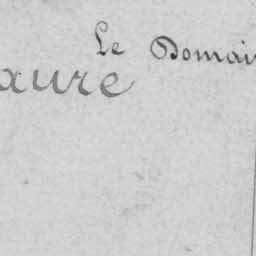 Le Domai
aure